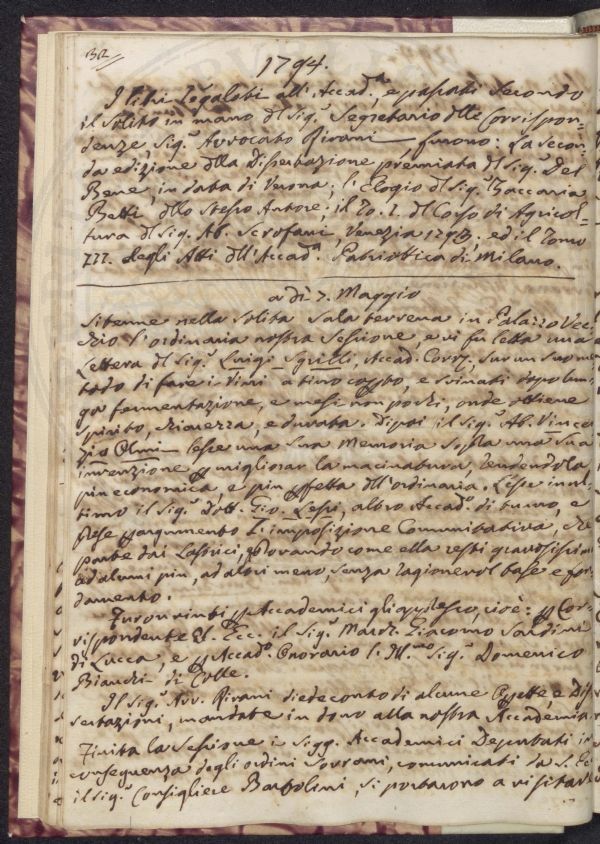 32
1794.
I libri regalati all'Accad.ª, e passati secondo
il solito in mano dl Sig.r Segretario dlle Corrispon=
denze, Sig.r Avvocato Rivani, furono: La secon=
da edizione dlla Dissertazione premiata dl Sig.r Del
Bene, in data di Verona; l'Elogio dl Sig.r Zaccaria
Betti, dllo stesso Autore; il To. I. dl Corso di Agricol=
tura dl Sig. Ab. Scrofani, Venezia 1793; ed il Tomo
III. degli Atti dll'Accad.ª Patriottica di Milano.
a dì 7. Maggio
Si tenne nella solita sala terrena in Palazzo Vec=
chio l'ordinaria nostra Sessione, e vi fu letta una
Lettera dl Sig.r Luigi Sgrilli, Accad. Corr.,
sur un suo me
todo di fare i Vini a tino , e svinati dopo lun=
ga fermentazione, e mesi non pochi, onde ottiene
spirito, chiarezza, e durata. Dipoi il Sig.r Ab. Vincen
zio Chini lesse una sua Memoria sopra una sua
invenzione p migliorar la macinatura, rendendola
più economica, e più pfetta dll'ordinaria. Lesse in ul=
timo il Sig.r Dott. Gio. Lessi, altro Accad.º di turno, e
prese p argumento l'imposizione Comunitativa, che
parte dai Lastrici, pvando come ella resti gravosissima
ad alcuni più, ad altri meno, senza ragionevol base e fon=
damento.
Furon vinti p Accademici gli appresso, cioè: p Cor=
rispondente El. Ecc. il Sig.r March. Giacomo Sardini
di Lucca, e p Accad.º Onorario l'Ill.mo Sig.r Domenico
Bianchi di Colle.
Il Sig.r Avv. Rivani diede conto di alcune Opette, e Dis=
sertazioni, mandate in dono alla nostra Accademia.
Finita la Sessione i Sigg. Accademici Deputati in
conseguenza degli ordini Sovrani, comunicati da S. Ec.
il Sig.r Consigliere Bartolini, si portarono a visitare